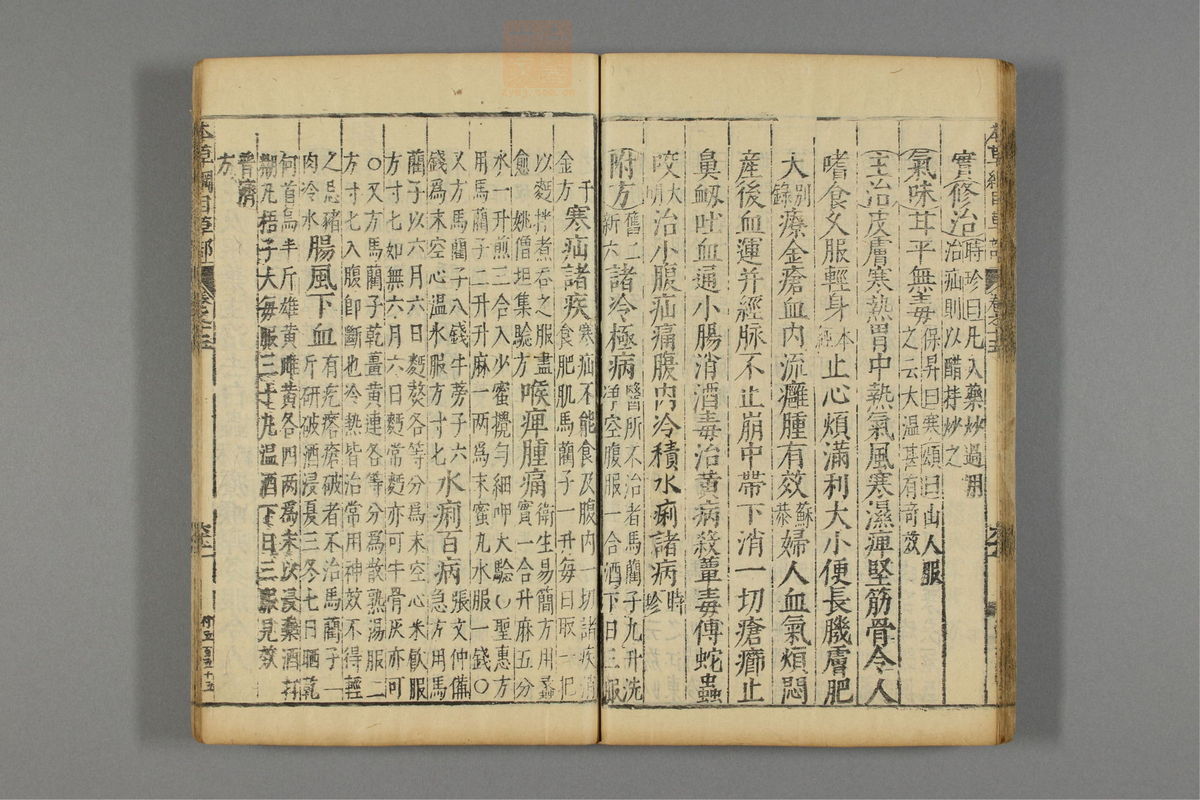 實修治時珍曰凡入藥炒過用
治疝則以醋拌炒之
氣味甘平無毒保昇曰寒頌曰山人服
之云大温甚有奇效
主治皮膚寒熱胃中熱氣風寒濕痺堅筋骨令人
嗜食久服輕身本經止心煩滿利大小便長肌膚肥
大别錄療金瘡血内流癰腫有效蘇恭婦人血氣煩悶
産後血運并經脉不止崩中帶下消一切瘡癤止
鼻衂吐血通小腸消酒毒治黄病殺蕈毒傅蛇蟲
咬大明治小腹疝痛腹内冷積水痢諸病時珍
附方舊二新六諸冷極病醫所不治者馬藺子九升洗
淨空腹服一合酒下日三服
千
金方寒疝諸疾寒疝不能食及腹内一切諸疾消
食肥肌馬藺子一升毎日取一把
以麪拌煮吞之服盡
愈姚僧坦集驗方喉痺腫痛衛生易簡方用蠡
實一合升麻五分
水一升煎三合入少蜜攪勻細呷大驗○聖惠方
用馬藺子二升升麻一两爲末蜜丸水服一錢○
又方馬藺子八錢牛蒡子六
錢爲末空心温水服方寸七水痢百病張文仲備
急方用馬
藺子以六月六日麪熬各等分爲末空心米飲服
方寸七如無六月六日麪常麪亦可牛骨灰亦可
○又方馬藺子乾薑黄連各等分爲散熟湯服二
方寸七入腹即斷也冷熱皆治常用神效不得輕
之忌猪
肉冷水腸風下血有疙瘩瘡破者不治馬藺子一
斤研破酒浸夏三冬七日晒乾
何首烏半斤雄黄雌黄各四两爲末以浸藥酒打
糊丸梧子大毎服三十丸温酒下日三服見效
普濟
方
本草綱目草部
卷之十五